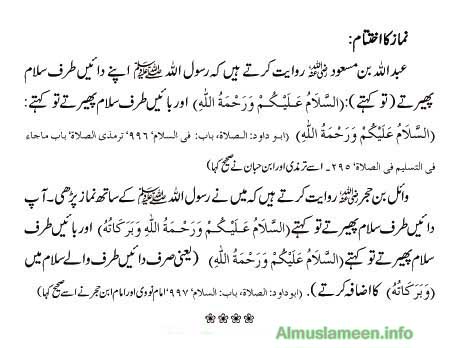 نماز کا اختتام:
عبد اللہ بن مسعود رضی اللہ عنہ روایت کرتے ہیں کہ رسول اللہ ﷺ اپنے دائیں طرف سلام
پھیرتے (تو کہتے): (السَّلَامُ عَلَيْكُمْ وَرَحْمَةُ اللهِ) اور بائیں طرف سلام پھیرتے تو کہتے:
(السَّلَامُ عَلَيْكُمْ وَرَحْمَةُ اللهِ) (ابو داود: الصلاة، باب: فى السلام، ۹۹۶، ترمذى الصلاة، باب ماجاء
فى التسليم فى الصلاة، ۲۹۵۔ اسے ترمذی اور ابن حبان نے صحیح کہا)
وائل بن حجر رضی اللہ عنہ روایت کرتے ہیں کہ میں نے رسول اللہ ﷺ کے ساتھ نماز پڑھی۔ آپ
دائیں طرف سلام پھیرتے تو کہتے (السَّلَامُ عَلَيْكُمْ وَرَحْمَةُ اللهِ وَبَرَكَاتُهُ) اور بائیں طرف
سلام پھیرتے تو کہتے (السَّلَامُ عَلَيْكُمْ وَرَحْمَةُ اللهِ) (یعنی صرف دائیں طرف والے سلام میں
(وَبَرَكَاتُهُ) کا اضافہ کرتے)۔ (ابوداود: الصلاة، باب: السلام، ۹۹۷، امام نووی اور امام ابن حجر نے اسے صحیح کہا)
Almuslameen.info